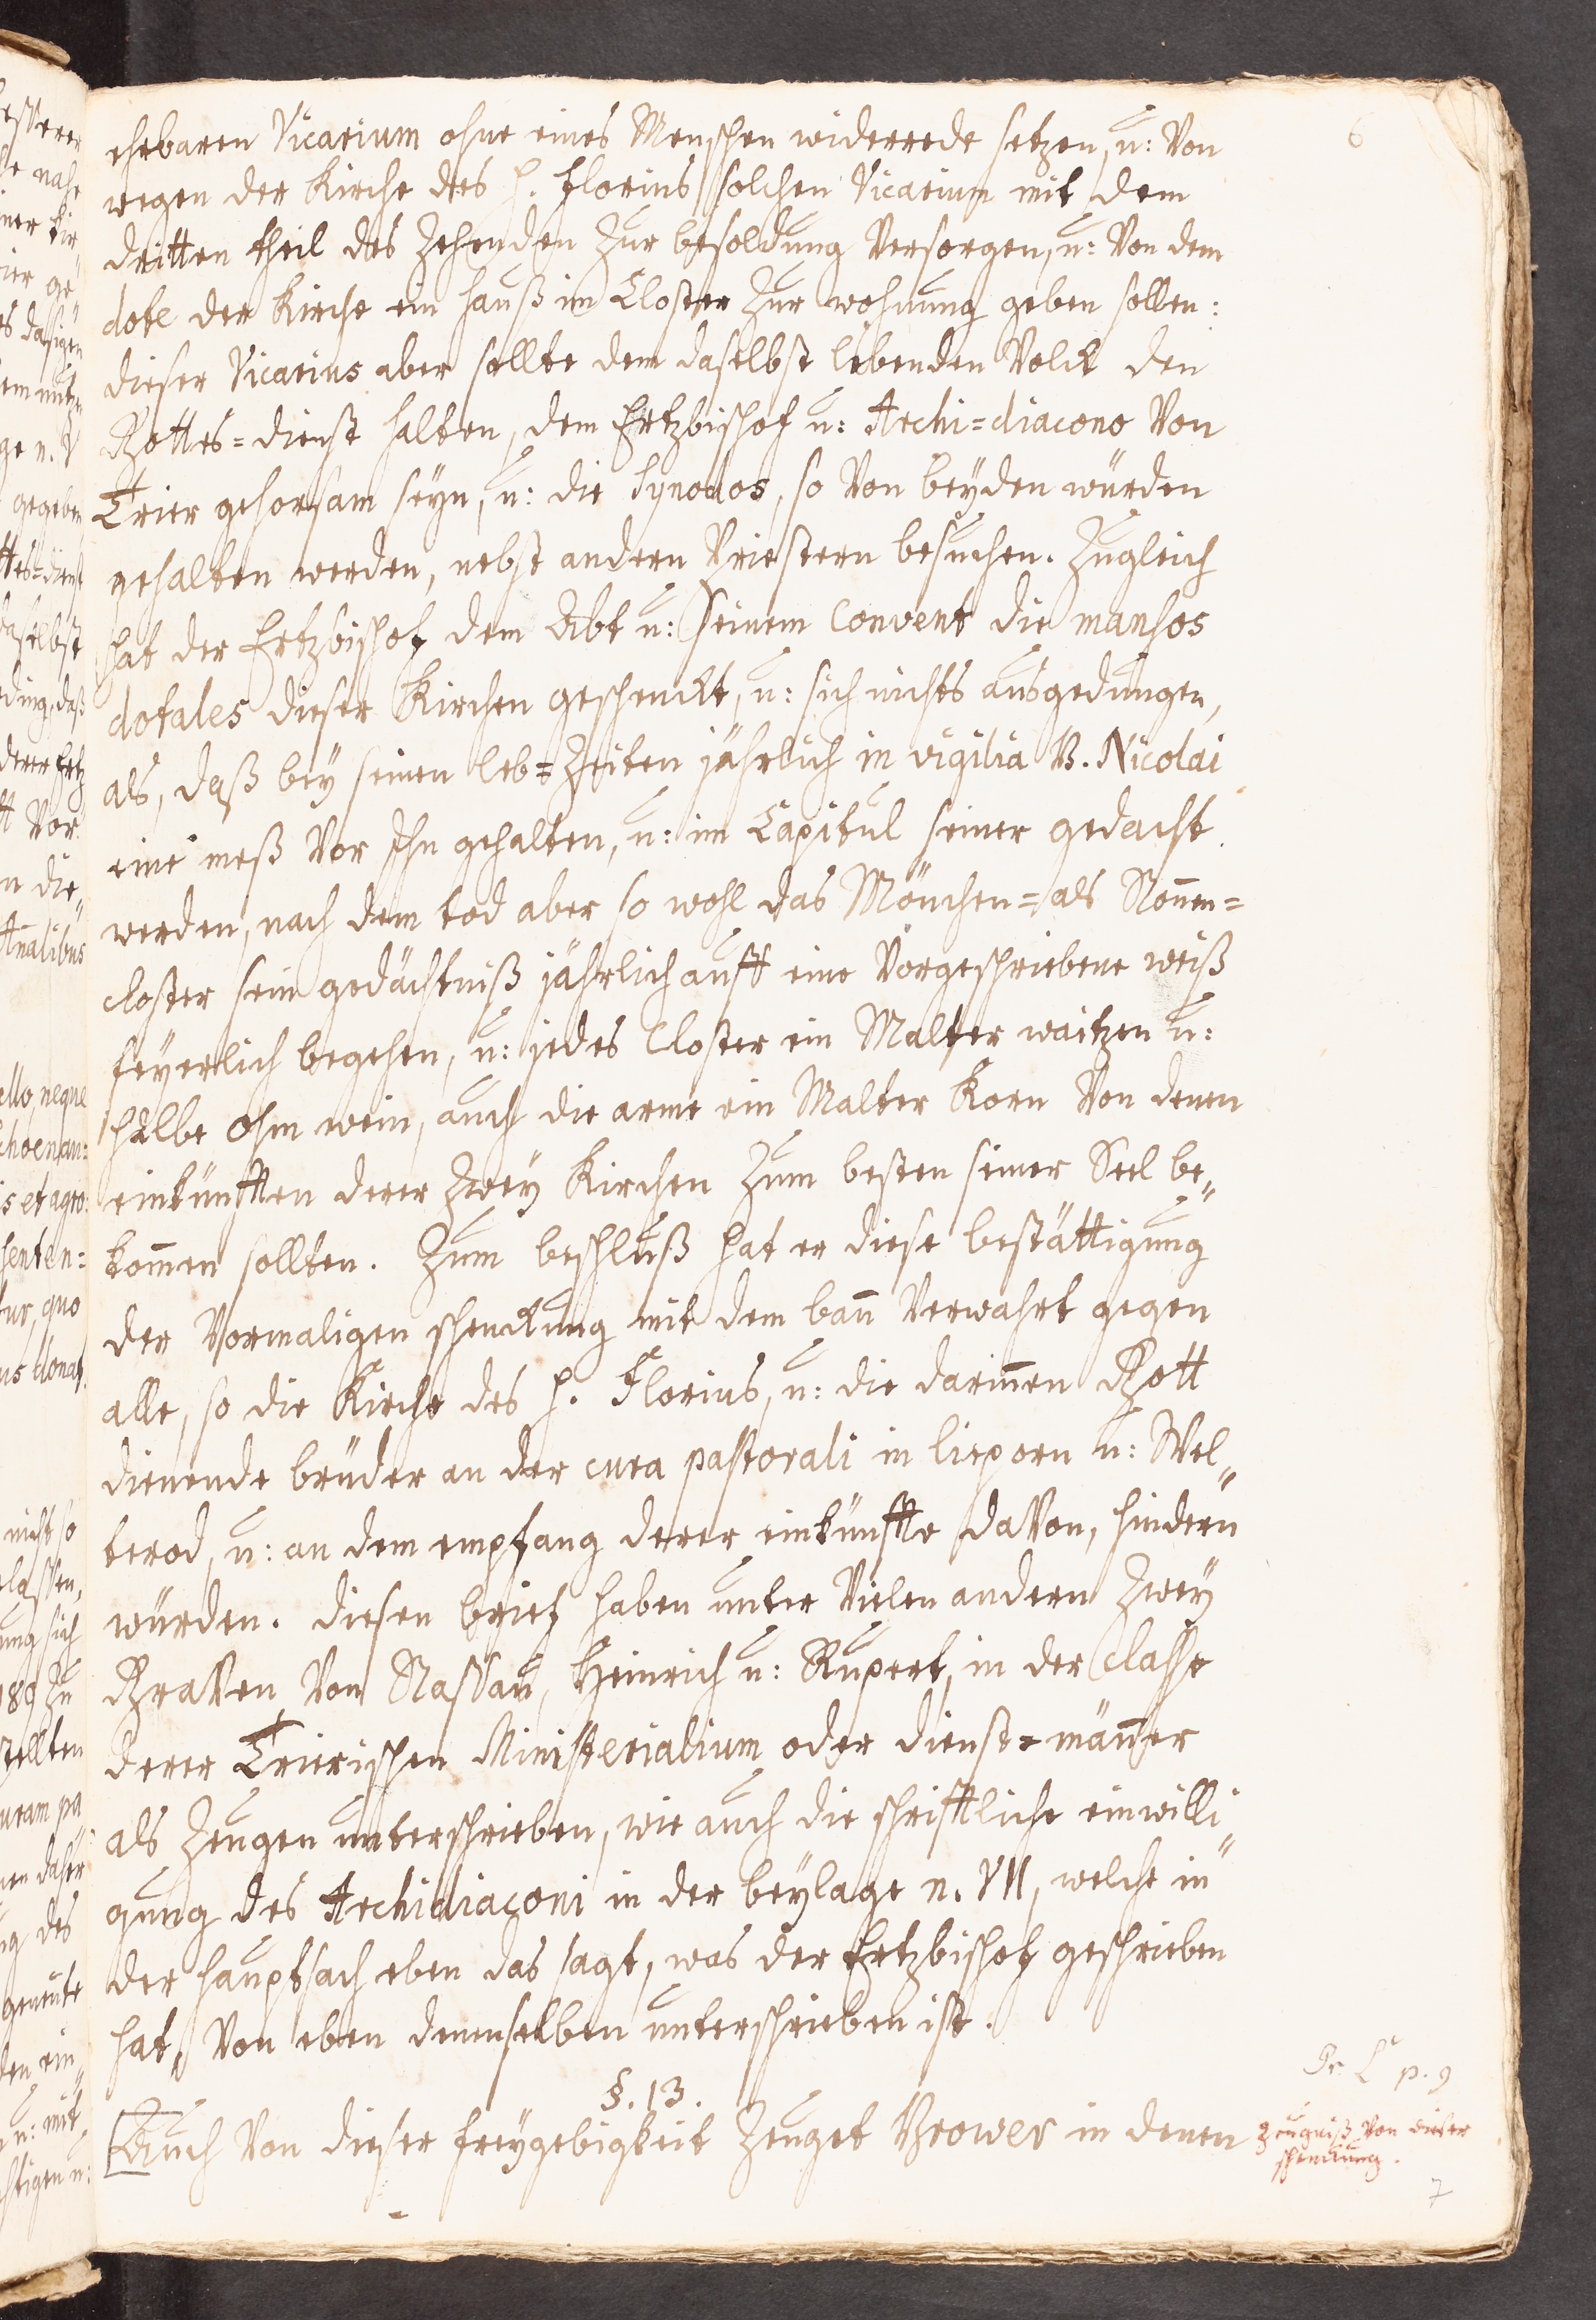 6
ehrbaren Vicarium ohne eines Menschen widerrede setzen, u: Von
wegen der Kirche des H. Florins solchen Vicarium mit dem
dritten theil des Zehenden Zur besoldung Versorgen, u: Von dem
dote der Kirche ein hauß im Closter Zur wohnung geben sollen:
dieser Vicarius aber sollte dem daselbst lebenden Volck den
Gottes=dienst halten, dem Ertzbischof u: Archi=diacono Von
Trier gehorsam seyn, u: die Synodos, so Von beyden würden
gehalten werden, nebst andern Priestern besuchen. Zugleich
hat der Ertzbischof dem Abt u: seinem Convent die mansos
dotales dieser Kirchen geschenckt, u: sich nichts ausgedungen,
als, daß bey seinen leb=Zeiten jährlich in vigilia B. Nicolai
eine meß Vor Ihn gehalten, u: im Capitul seiner gedacht
werden, nach dem tod aber so wohl das Mönchen= als Nonnen=
closter sein gedächtniß jährlich aufft eine Vorgeschriebene weiß
feyerlich begehen, u: jedes Closter ein Malter waitzen u:
halbe Ohm wein, auch die arme ein Malter Korn Von denen
einkünfften derer Zwey Kirchen Zum besten seiner Seel be„
kom̄en sollten. Zum beschluß hat er diese bestättigung
der Vormaligen schenckung mit dem ban̄ Verwahrt gegen
alle, so die Kirche des H. Florins, u: die darin̄en Gott
dienende brüder an der cura pastorali in lieporn u: Wel„
terod, u: an dem empfang derer einkünffte daVon, hindern
würden. diesen brief haben unter Vielen andern Zwey
GraVen Von Nassau, Heinrich u: Rupert, in der Classe
derer Trierischen Ministerialium oder dienst=män̄er
als Zeugen unterschrieben, wie auch die schrifftliche einwilli„
gung des Archidiaconi in der beylage n. VII, welche in
der hauptsach eben das sagt, was der Ertzbischof geschrieben
hat, Von eben denenselben unterschrieben ist.
§. 13.
Auch Von dieser freygebigkeit Zeuget Brower in denen
p. 9
Zeugniß Von dieser
schenckung.
7